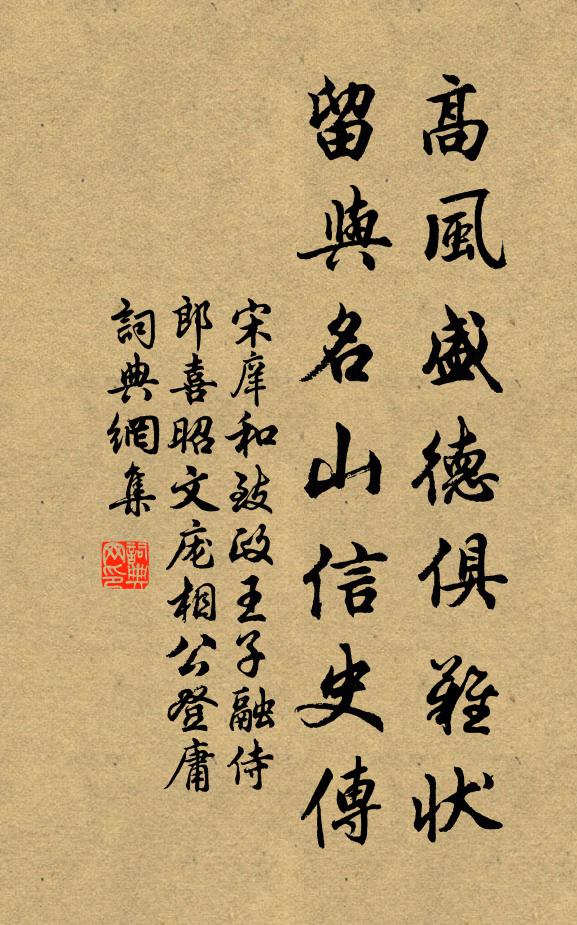 高風盛德俱難狀
留與名山信史傳
宋庠和致政王子融侍
郎喜昭文庞相公登庸
詞典網集
詞典
网印